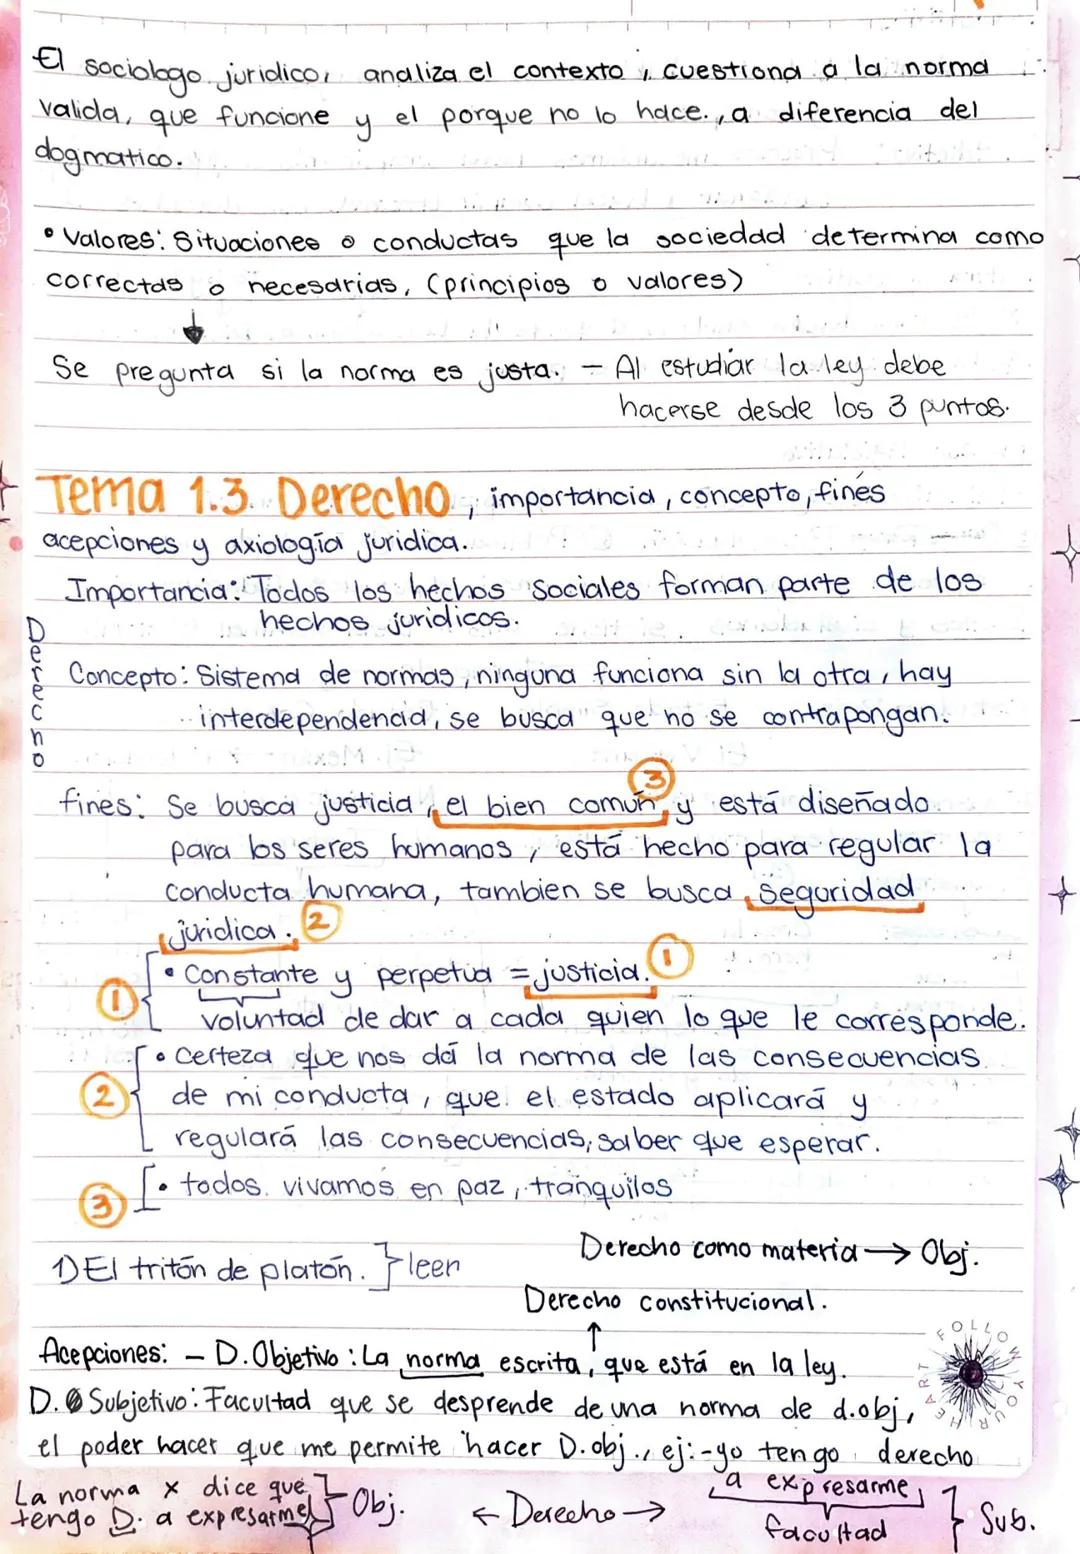 El sociologo juridico, analiza el contexto, cuestiona a la norma
valida, que funcione y el porque no lo hace., a diferencia del
dogmatico.
• Valores: Situaciones o conductas que la sociedad determina como
correctas o necesarias, (principios o valores)
↓
Se pregunta si la norma es justa. - Al estudiar la ley debe
hacerse desde los 3 puntos.
Tema 1.3. Derecho, importancia, concepto, fines
acepciones y axiología juridica.
Importancia: Todos los hechos sociales forman parte de los
hechos juridicos.
Derecho
Concepto: Sistema de normas, ninguna funciona sin la otra, hay
interdependencia, se busca que no se contrapongan.
③
fines: Se busca justicia, el bien común, y está diseñado
para los seres humanos, está hecho para regular la
conducta humana, tambien se busca seguridad
juridica. ②
① • Constante y perpetua = justicia. ①
voluntad de dar a cada quien lo que le corresponde.
• Certeza que nos dá la norma de las consecuencias
② de mi conducta, que el estado aplicará y
regulará las consecuencias, saber que esperar.
③ • todos vivamos en paz, tranquilos
Derecho como materia → Obj.
1) El tritón de platón. } leer
Derecho constitucional.
↑
Acepciones: - D. Objetivo: La norma escrita, que está en la ley.
D. Subjetivo: Facultad que se desprende de una norma de d.obj,
el poder hacer que me permite hacer D.obj., ej:-yo tengo derecho
a expresarme } Sub.
facultad
La norma x dice que
tengo D. a expresarme } Obj. ← Derecho →
FOLLOW YOUR HEART